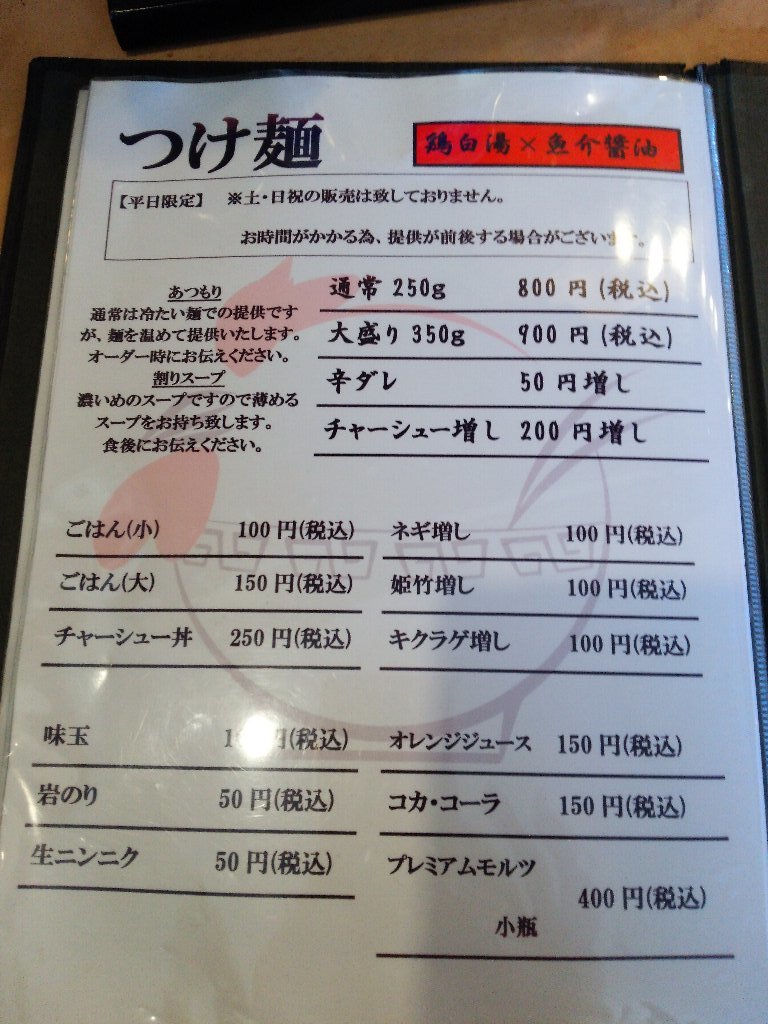 つけ麺
鶏白湯×魚介醤油
【平日限定】 ※土・日祝の販売は致しておりません。
お時間がかかる為、提供が前後する場合がございます。
あつもり
通常は冷たい麺での提供です
が、麺を温めて提供いたします。
オーダー時にお伝えください。
割りスープ
濃いめのスープですので薄める
スープをお持ち致します。
食後にお伝えください。
通常 250g 800 円 (税込)
大盛り 350g 900 円 (税込)
辛ダレ 50 円増し
チャーシュー増し 200 円増し
ごはん(小) 100 円(税込)
ごはん(大) 150 円(税込)
チャーシュー丼 250 円(税込)
ネギ増し 100 円(税込)
姫竹増し 100 円(税込)
キクラゲ増し 100 円(税込)
味玉 円(税込)
岩のり 50 円(税込)
生ニンニク 50 円(税込)
オレンジジュース 150 円(税込)
コカ・コーラ 150 円(税込)
プレミアムモルツ
400 円(税込)
小瓶